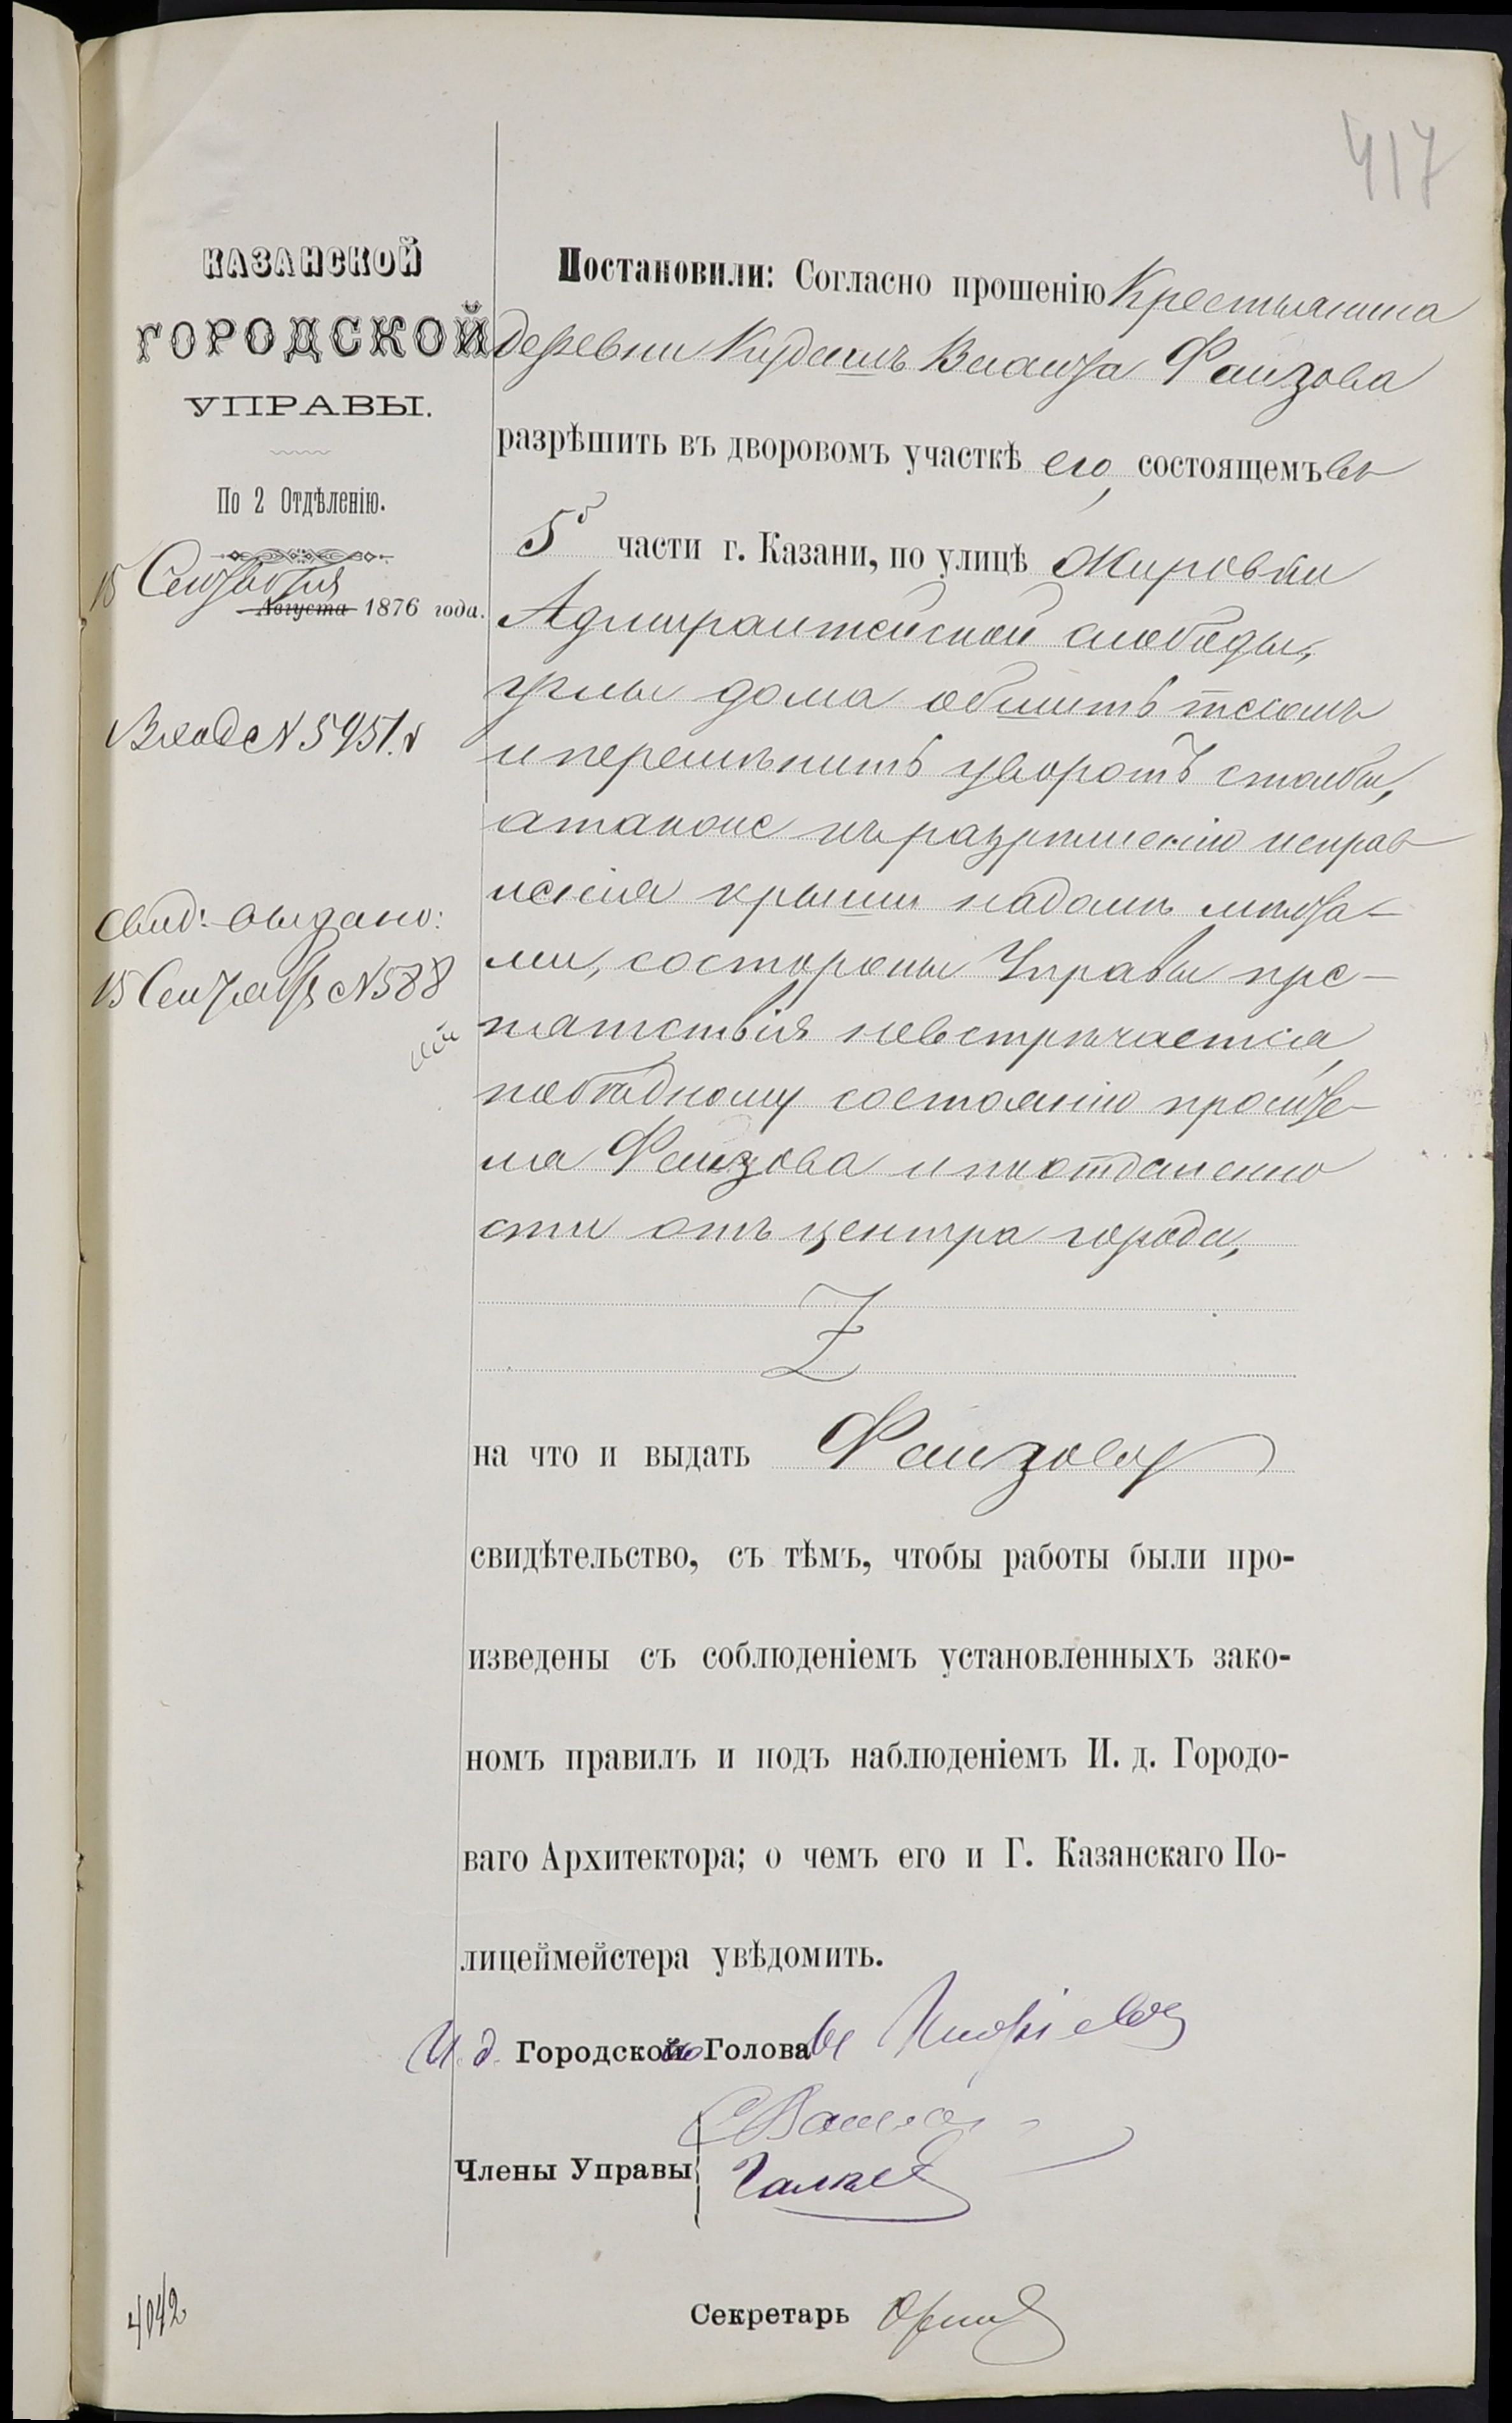 417
КАЗАНСКОЙ
ГОРОДСКОЙ
УПРАВЫ.
По 2 Отдѣленію.
15 Сентября
Августа 1876 года.
Вход № 5951.
Свид: выдано:
15 Сентября № 588
Постановили: Согласно прошенію Крестьянина
деревни Кудашъ Фаизова
разрѣшить въ дворовомъ участкѣ его, состоящемъ въ
5й части г. Казани, по улицѣ Жировкѣ
Адмиралтейской слободы,
углы дома обшить тесомъ
и перемѣнить у воротъ столбы,
а также къ разрѣшенію исправ
ленія крыши надъ мѣста-
ми, со стороны Управы пре-
пятствія невстрѣчается,
по бѣдному состоянію просите-
ля Фаизова и по отдаленно
сти отъ центра города,
Z
на что и выдать Фаизову
свидѣтельство, съ тѣмъ, чтобы работы были про-
изведены съ соблюденіемъ установленныхъ зако-
номъ правилъ и подъ наблюденіемъ И. д. Городо-
ваго Архитектора; о чемъ его и Г. Казанскаго По-
лицеймейстера увѣдомить.
И. д. Городского Головы
Члены Управы
Секретарь
4042